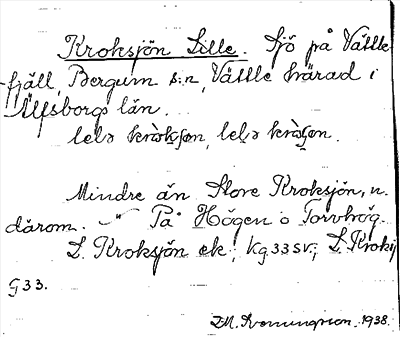 Kroksjön Lille. Sjö på Vättle
fjäll, Bergum s:n, Vättle härad i
Älfsborgs län.
lelə kròksən, lelə kròʃən.
Mindre än Store Kroksjön, n.
därom. –"– På Högen o Torvhög.
L. Kroksjön ek.; Kg33SV.; L. Kroksj
G33.
1938.